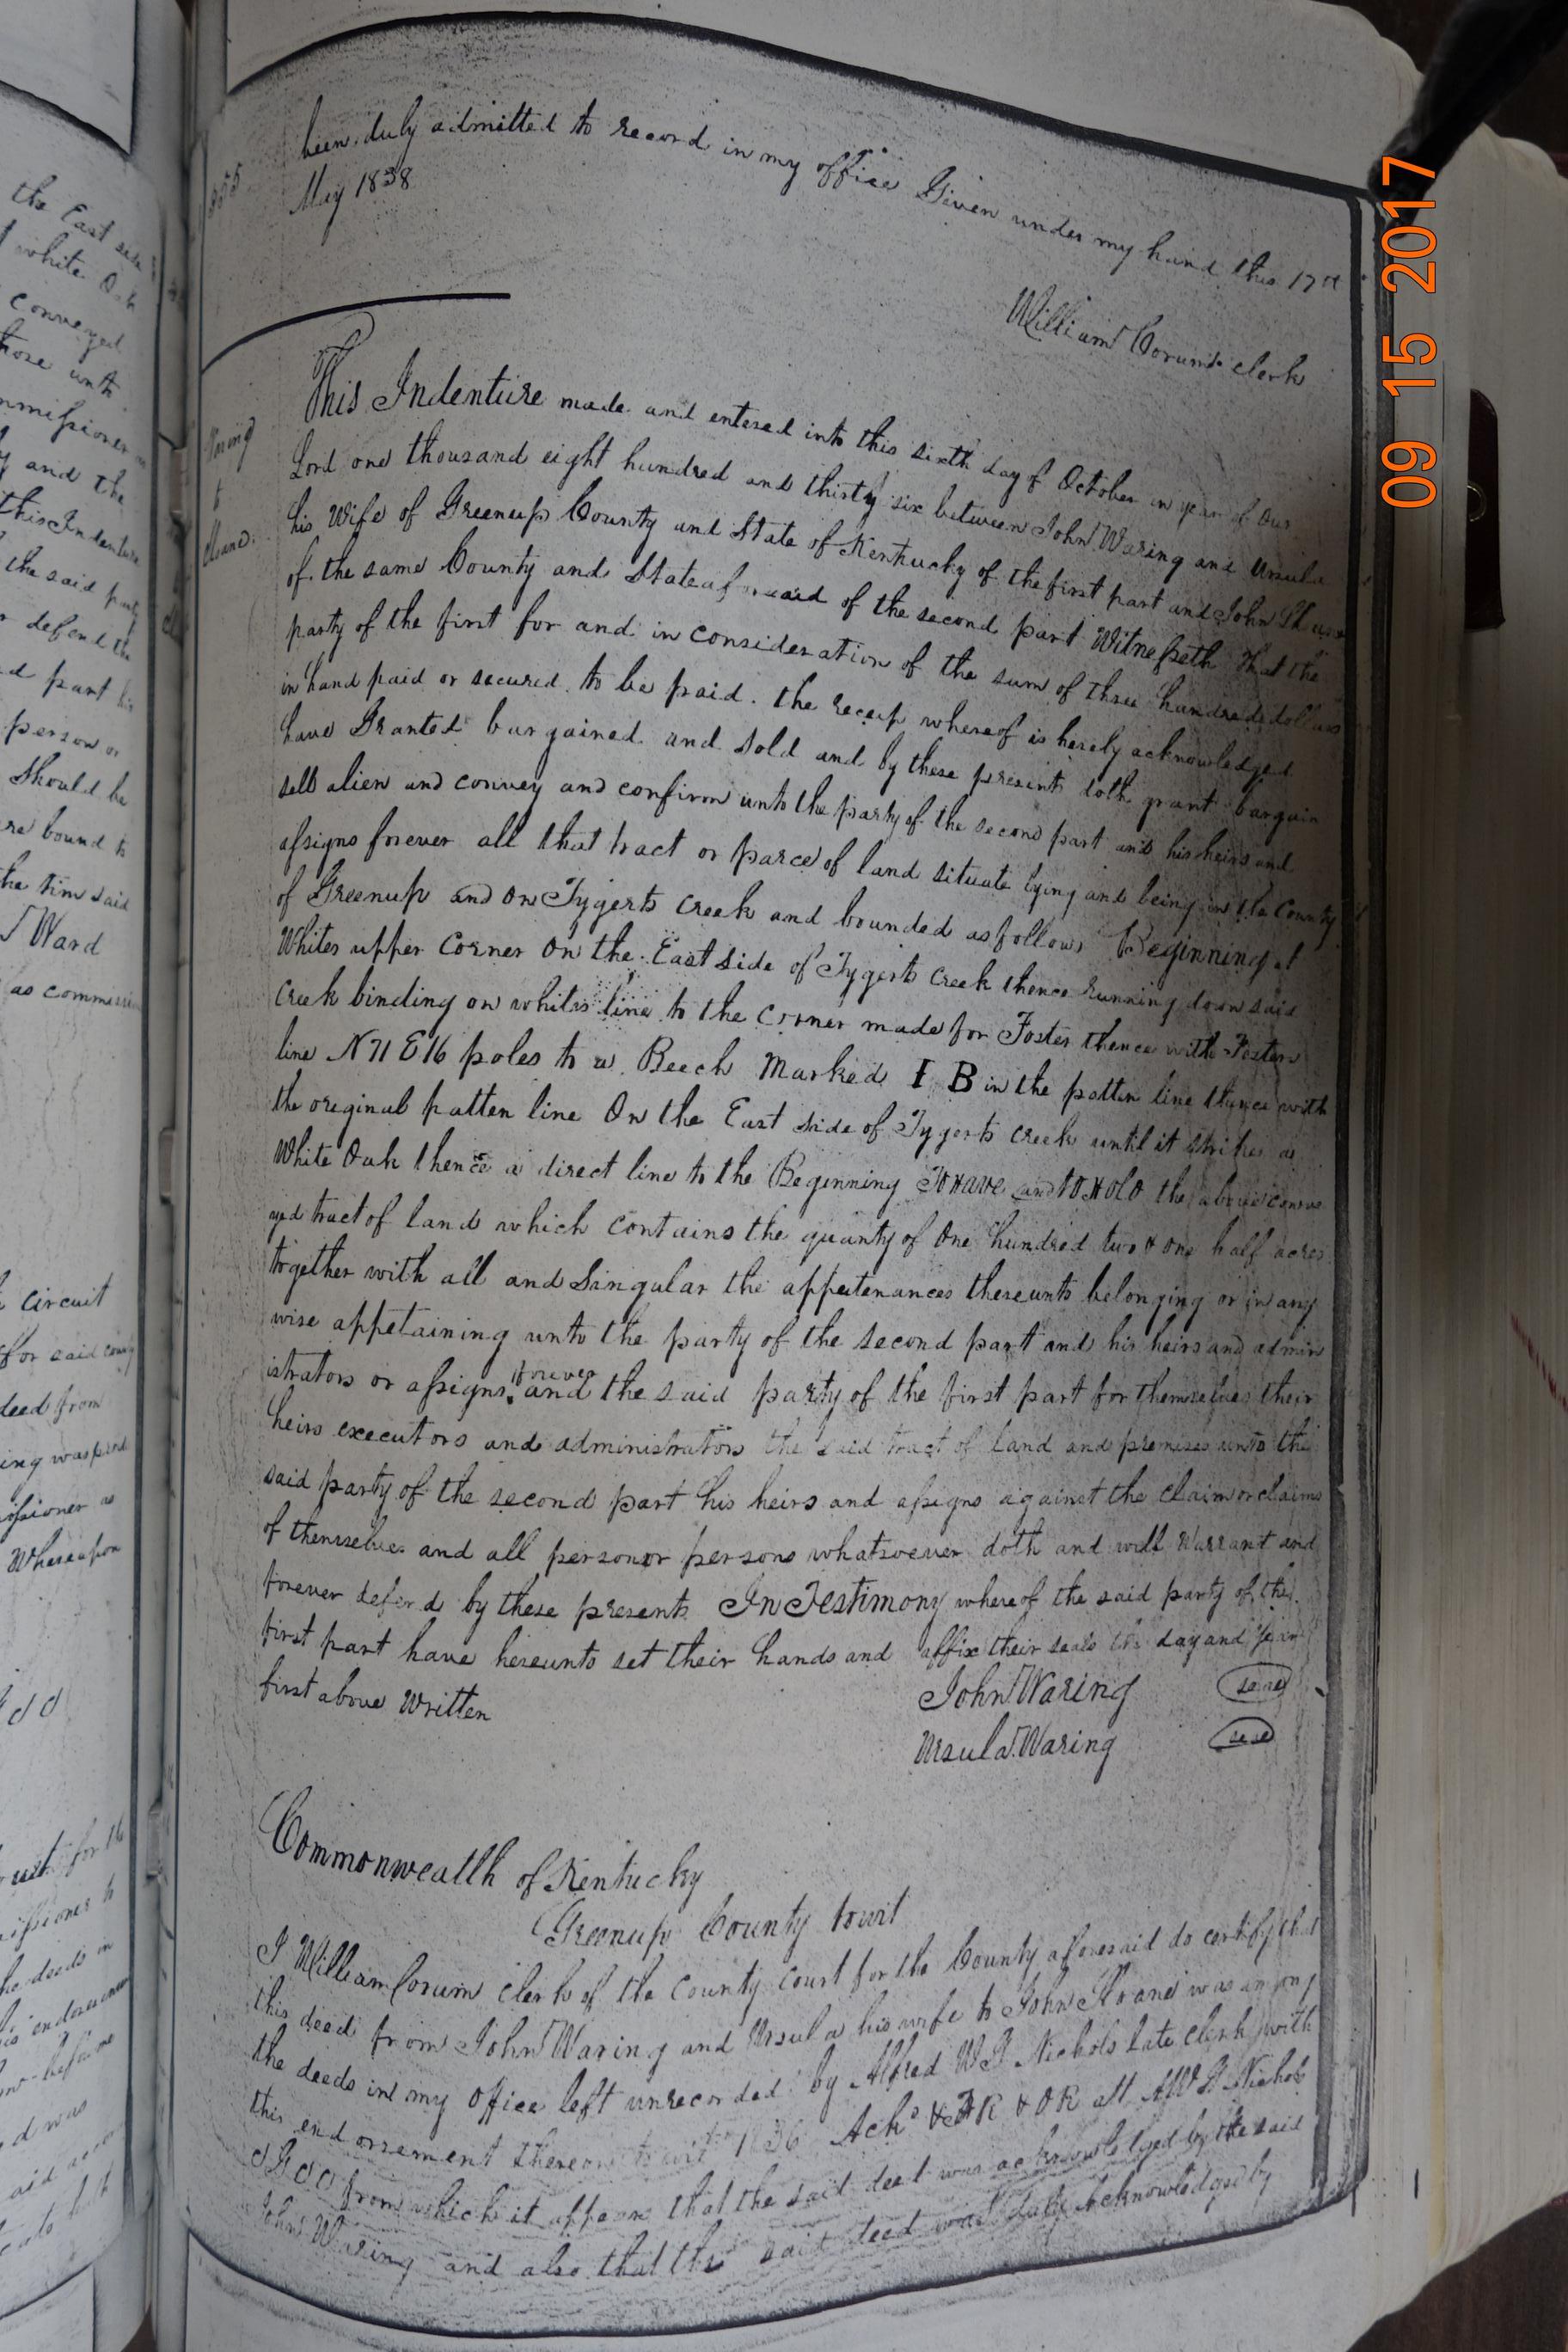 been duly admitted to record in my office Given under my hand this 17th
May 1838
William Corum clerk
This Indenture made and entered into this sixth day of October in year of our
Lord one thousand eight hundred and thirty six between John Waring and Ursula
his Wife of Greenup County and State of Kentucky of the first part and John
of the same County and State aforesaid of the second part Witnesseth that the
party of the first for and in consideration of the sum of three hundred dollars
in hand paid or secured to be paid. the receip whereof is herely acknowledged
have Granted bargained and sold and by these presents doth grant bargain
sell alien and convey and confirm unto the party of the second part and his heirs and
assigns forever all that tract or parce of land situate lying and being in the County
of Greenup and on Tygerts creek and bounded as follows Beginning at
Whites upper Corner On the East side of Tygerts creek thence running down said
creek binding on whites line to the corner made for Foster thence with Fosters
line N 71 E 16 poles to a Beech Marked I B in the patten line thence with
the oreginal patten line On the East side of Tygerts creek until it strikes a
White Oak thence a direct line to the Beginning To Have and to Hold the above conve
yed tract of land which contains the quanty of One hundred two & one half acres
together with all and Singular the appertenances thereunto belonging or in any
wise appetaining unto the party of the second part and his heirs and admin
istrators or assigns forever and the said party of the first part for themselves their
heirs executors and administrators the said tract of land and premises unto the
said party of the second part his heirs and assigns against the claim or claims
of themselves and all person or persons whatsoever doth and will Warrant and
forever defend by these presents In Testimony whereof the said party of the
first part have hereunto set their hands and affix their seals the day and year
first above Written
John Waring seal
Ursula Waring seal
Commonwealth of Kentucky
Greenup County towit
I William Corum Clerk of the County Court for the County aforesaid do certify that
this deed from John Waring and Ursula his wife to John Sloane was among
the deeds in my Office left unrecorded by Alfred W G Nichols late clerk with
this endorsement thereon towit 1836 Ackd & FR & OR att A W G Nichols
from which it appears that the said deed was acknowledged by the said
John Waring and also that the said deed was duly acknowledged by
09 15 2017
the East side
white Oak
conveyed
and the
this Indenture
the said party
defend the
person or
Should be
bound to
said
Ward
circuit
for said
deed from
Whereupon